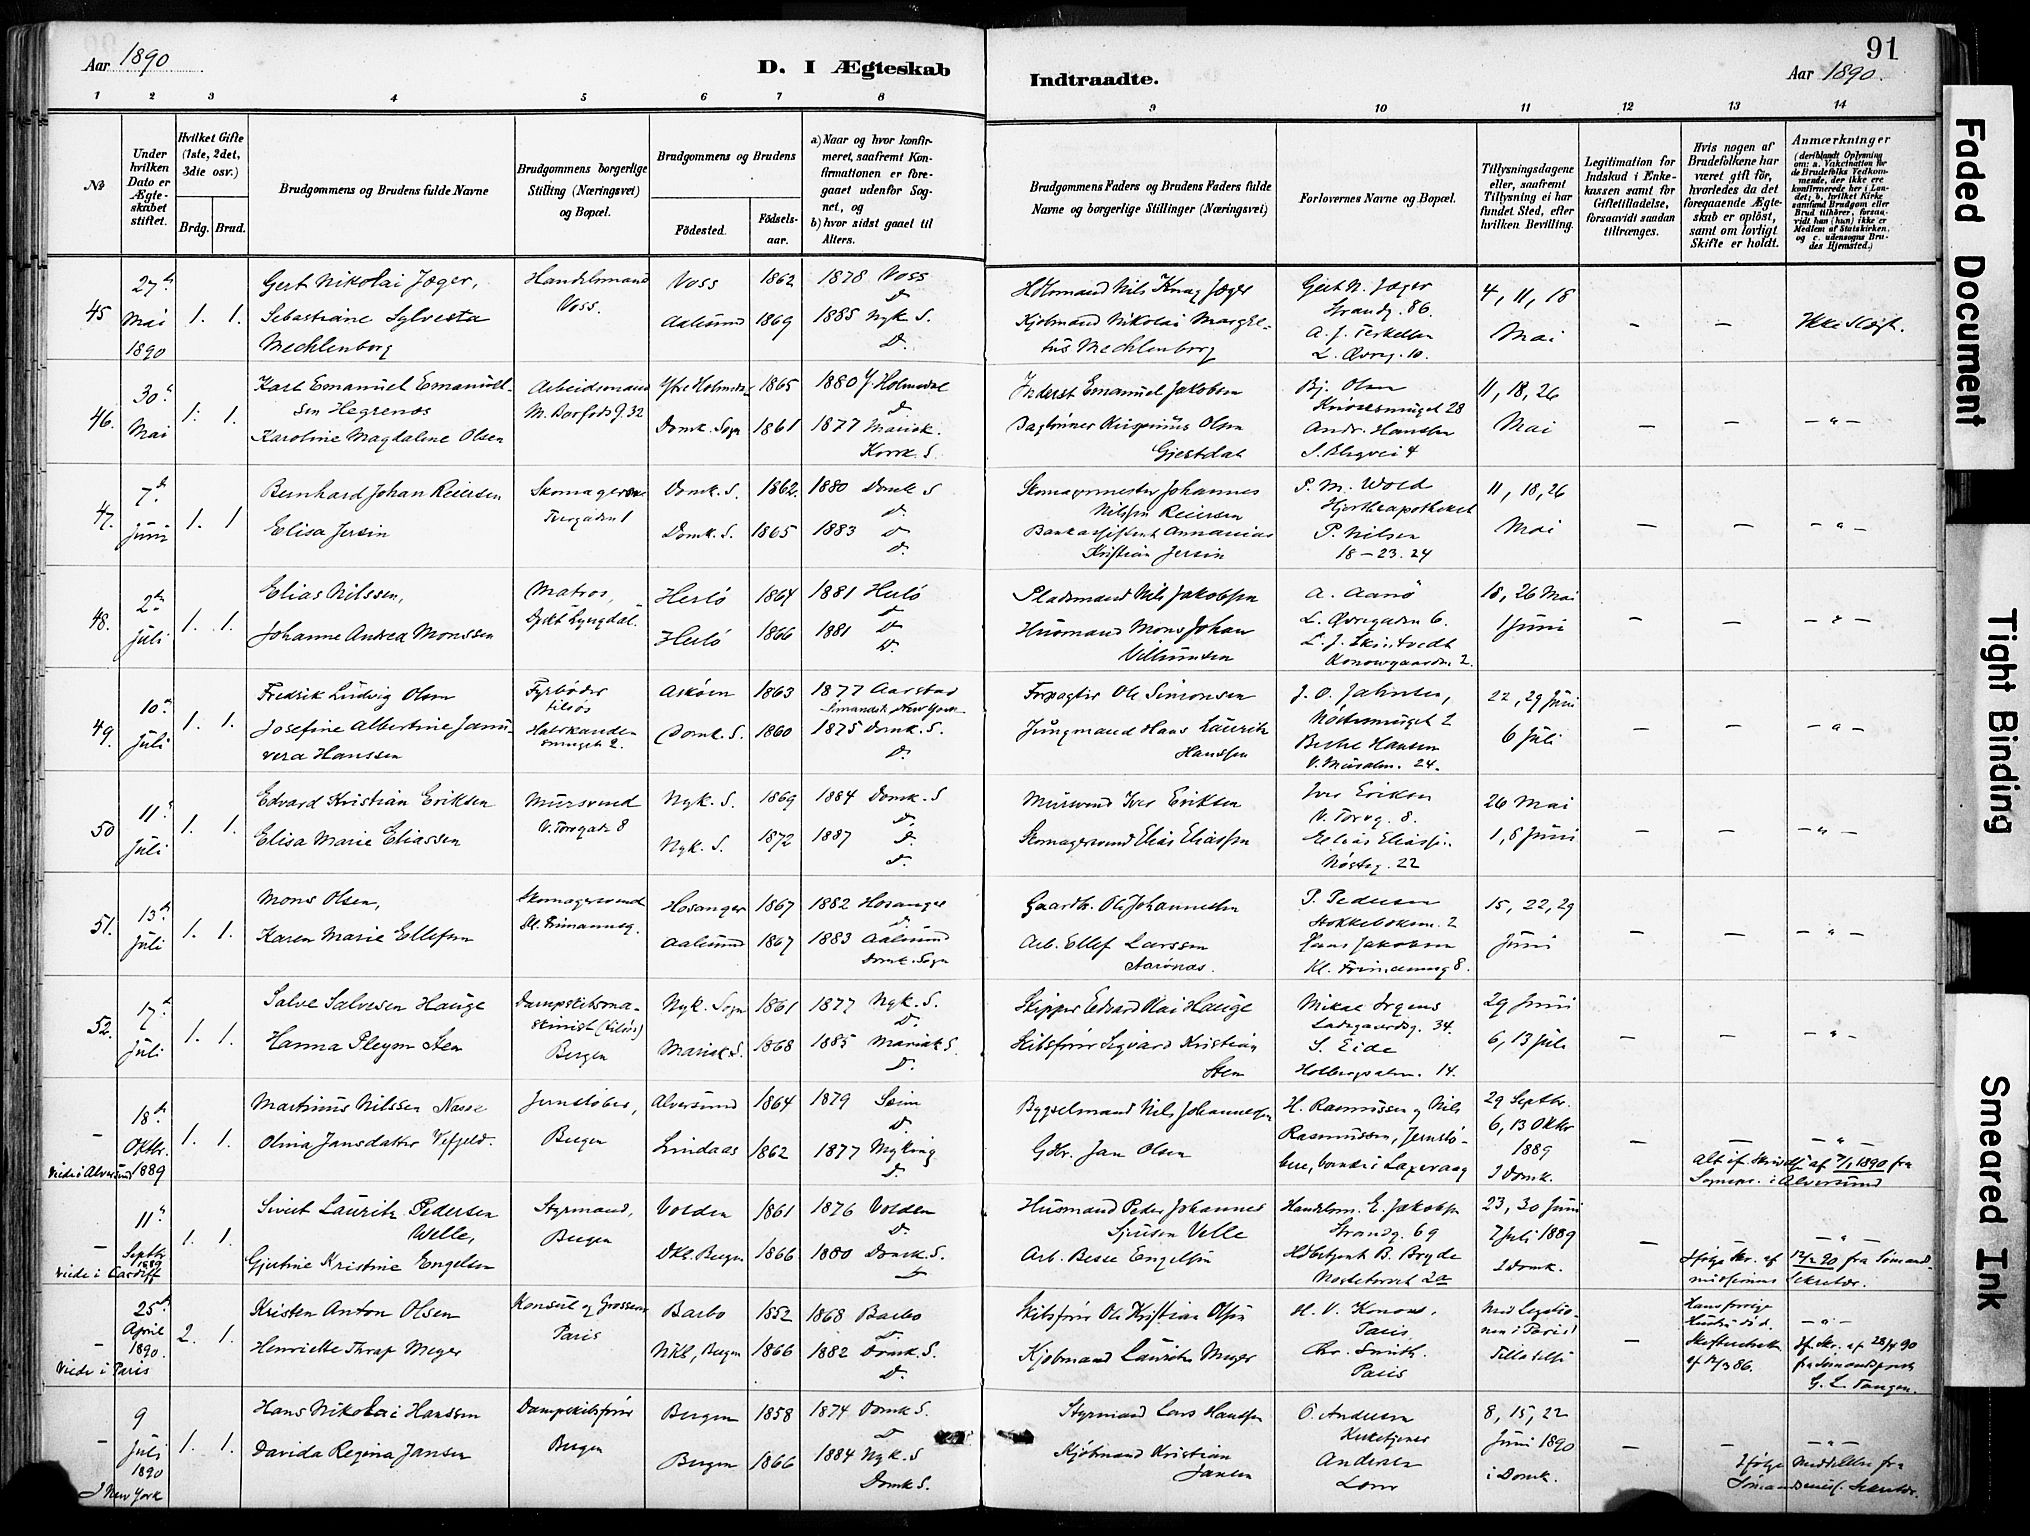 Aar 1890
D. I Ægteskab
Indtraadte.
91
Aar 1890.
1 2 3 4 5 6 7 8 9 10 11 12 13 14
№
Under hvilken Dato er Ægteskabet stiftet.
Hvilket Gifte (1ste, 2det, 3die osv.)
Brdg. Brud.
Brudgommens og Brudens fulde Navne
Brudgommens borgerlige Stilling (Næringsvei) og Bopæl.
Brudgommens og Brudens
Födested. Födsels-aar.
a) Naar og hvor konfirmeret, saafremt Konfirmationen er foregaaet udenfor Sognet, og
b) hvor sidst gaaet til Alters.
Brudgommens Faders og Brudens Faders fulde Navne og borgerlige Stillinger (Næringsvei)
Forlovernes Navne og Bopæl.
Tillysningsdagene eller, saafremt Tillysning ei har fundet Sted, efter hvilken Bevilling.
Legitimation for Indskud i Enkekassen samt for Giftetilladelse, forsaavidt saadan tiltrænges.
Hvis nogen af Brudefolkene har været gift för, hvorledes da det foregaaende Ægteskab er oplöst, samt om lovligt Skifte er holdt.
Anmærkninger
(deriblandt Oplysning om: a. Vakcination for de Brudefolks Vedkommende, der ikke ere konfirmerede her i Landet; b. hvilket Kirkesamfund Brudgom eller Brud tilhörer, forsaavidt han (hun) ikke er Medlem af Statskirken, og c. udensogns Brudes Hjemsted.)
45 27de Mai 1890 1. 1.
Gert Nikolai Jæger,
Sebastiane Sylvesta
Mechlenborg
Handelsmand
Voss.
Voss 1862 1878 Voss
Aalesund 1869 1885 Nyk. S.
D.
Hdlsmand Nils Knag Jæger
Kjøbmand Nikolai
Mechlenborg
Gert N. Jæger
Strandg. 86.
A. J. Terkelsen
L. Øvreg. 10.
4, 11, 18
Mai
— — Ikke Slægt.
46. 30 Mai 1. 1.
Karl Emanuel Emanuel-
sen Hegrenæs
Karoline Magdalene Olsen
Arbeidsmand
Ytre Holmedal 1865 1880 Y. Holmedal
Domk. Sogn 1861 1877 Mariak.
Korsk. S.
Inderst Emanuel Jakobsen
Gjestdal
Bj. Olsen
Andr. Hansen
11, 18, 26
Mai
— — —"—
47. 7de Juni 1. 1
Bernhard Johan Reiersen
Elisa Jersin
Domk. S. 1862. 1880 Domk S
Domk. S. 1865 1883 D.
D.
Skomagermester Johannes
Nilssen Reiersen
Bankassistent Annanias
Kristian Jersin
P. M. Wold
Hjortheapotheket
P. Nilsen
18-23.24
11, 18, 26
Mai
— — —"—
48. 2den Juli 1. 1.
Elias Nilssen,
Johanne Andrea Monssen
Matros,
Herlö 1864 1881 Herlö
Herlö 1866 1881 D.
D.
Pladsmand Nils Jakobsen
Husmand Mons Johan
Villumsen
A. Aanö
L. Øvregaden 6.
18, 26 Mai
1 Juni
— — —"—
49. 10de Juli 1. 1.
Fredrik Ludvig Olsen
Josefine Albertine Janu-
vera Hanssen
Fyrböder
tilsøs
Askøen 1863 1877 Aarstad
New York
Domk. S. 1860 1875 Domk. S.
D.
Forpagter Ole Simonsen
Jungmand Hans Lauritz
Hanssen
Nöstesmuget 2
22, 29 Juni
6 Juli
— — —"—
50 11 Juli 1. 1.
Edvard Kristian Eriksen
Elisa Marie Eliassen
Mursvend
V. Torvgade 8
Nyk. S. 1869 1884 Domk. S
Nyk. S. 1872 1887 D.
D.
Mursvend Iver Eriksen
Skomagersvend Elias Eliassen
Iver Eriksen
V. Torvg. 8.
Elias Eliassen
Nøsteg. 22
26 Mai
1, 8 Juni
— — —"—
51. 13de Juli 1. 1.
Mons Olsen,
Karen Marie Ellefsen
Skomagersvend
Hosanger 1867 1882 Hosanger
Aalesund 1867 1883 Aalesund
Domk. Sogn
Gaardbr. Ole Johannessen
Arb. Ellef Larssen
Aarönæs.
P. Pedersen
Hans Jakobsen
15, 22, 29
Juni
— — —"—
52. 17de Juli 1. 1.
Salve Salvesen Hauge
Hanna Pleym Sten
Dampskibsma-
skinist (tilsøs)
Bergen
Nyk. Sogn 1861 1877 Nyk. S.
D.
Mariak S. 1868 1885 Mariak S.
D.
Skipper Edvard Kai Hauge
Skibsfører Sigvard Kristian
Sten
Mikal Irgens
Ladegaardsg. 34.
S. Eide
Holbergsalm. 14.
29 Juni
6, 13 Juli
— — —"—
— 18de Oktbr. 1889 1. 1.
viede i Alversund
Martinus Nilssen Nasse
Olina Jansdatter
Jernstøber,
Bergen
Alversund 1864 1879 Seim
D.
Lindaas 1862 1877 Myking
D.
Bygselmand Nils Johannessen
Gdbr. Jan Olsen
H. Rasmussen og Nils
Rasmussen, Jernstø-
bere,
29 Septbr.
6, 13 Oktbr
1889
I Domk.
— — —"—
1890 fra
Sognepr. i Alversund
— 11 Septbr 1889 1. 1.
viede i Cardiff
Sivert Lauritz Pedersen
Welle,
Gjertine Kristine Engelsen
Styrmand,
Bergen
Volden 1861 1876 Volden
D.
Dk. Bergen 1866 1880 Domk. S.
Husmand Peder Johannes
Sjursen Velle
Arb. Engelsen
Handelsm. E. Jakobsen
Strandg. 69
B. Bryde
Nøstetorvet 2a
23, 30 Juni
7 Juli 1889
I Domk.
— —"—
Ifølge Skr. af 12/2 90 fra Sømands-
missionens Sekretær.
— 25de April 1890. 2. 1.
viede i Paris
Kristen Anton Olsen
Henriette Thrap Meyer
Konsul og Grosserer
Paris
Barbo 1852 1868 Barbo
D.
Nkl., Bergen 1866 1882 Domk. S.
D.
Skibsfører Ole Kristian Olsen
Kjøbmand Lauritz Meyer
Paris
Chr. Smith.
Paris
Med Legatio-
nen i Paris'
Tilladelse
—
Hans forrige
Hustru død.
—"—
If. Skr. af 28/4 90
fra Sømandsprest
— 9 Juli 1890 1. 1.
I New York
Hans Nikolai Hanssen
Davida Regina Jansen
Dampskibsfører
Bergen
Bergen 1858 1874 Domk S.
D
Bergen 1866 1884 Nyk. S
Domk S.
Styrmand Lars Hanssen
Kjøbmand Kristian
Jansen
O. Andersen
Kirketjener
Andersen
8, 15, 22
Juni 1890
i Domk.
— — —"—
Ifølge Meddelelse fra
Sømandsmiss. Sekretær.
Faded Document
Tight Binding
Smeared Ink